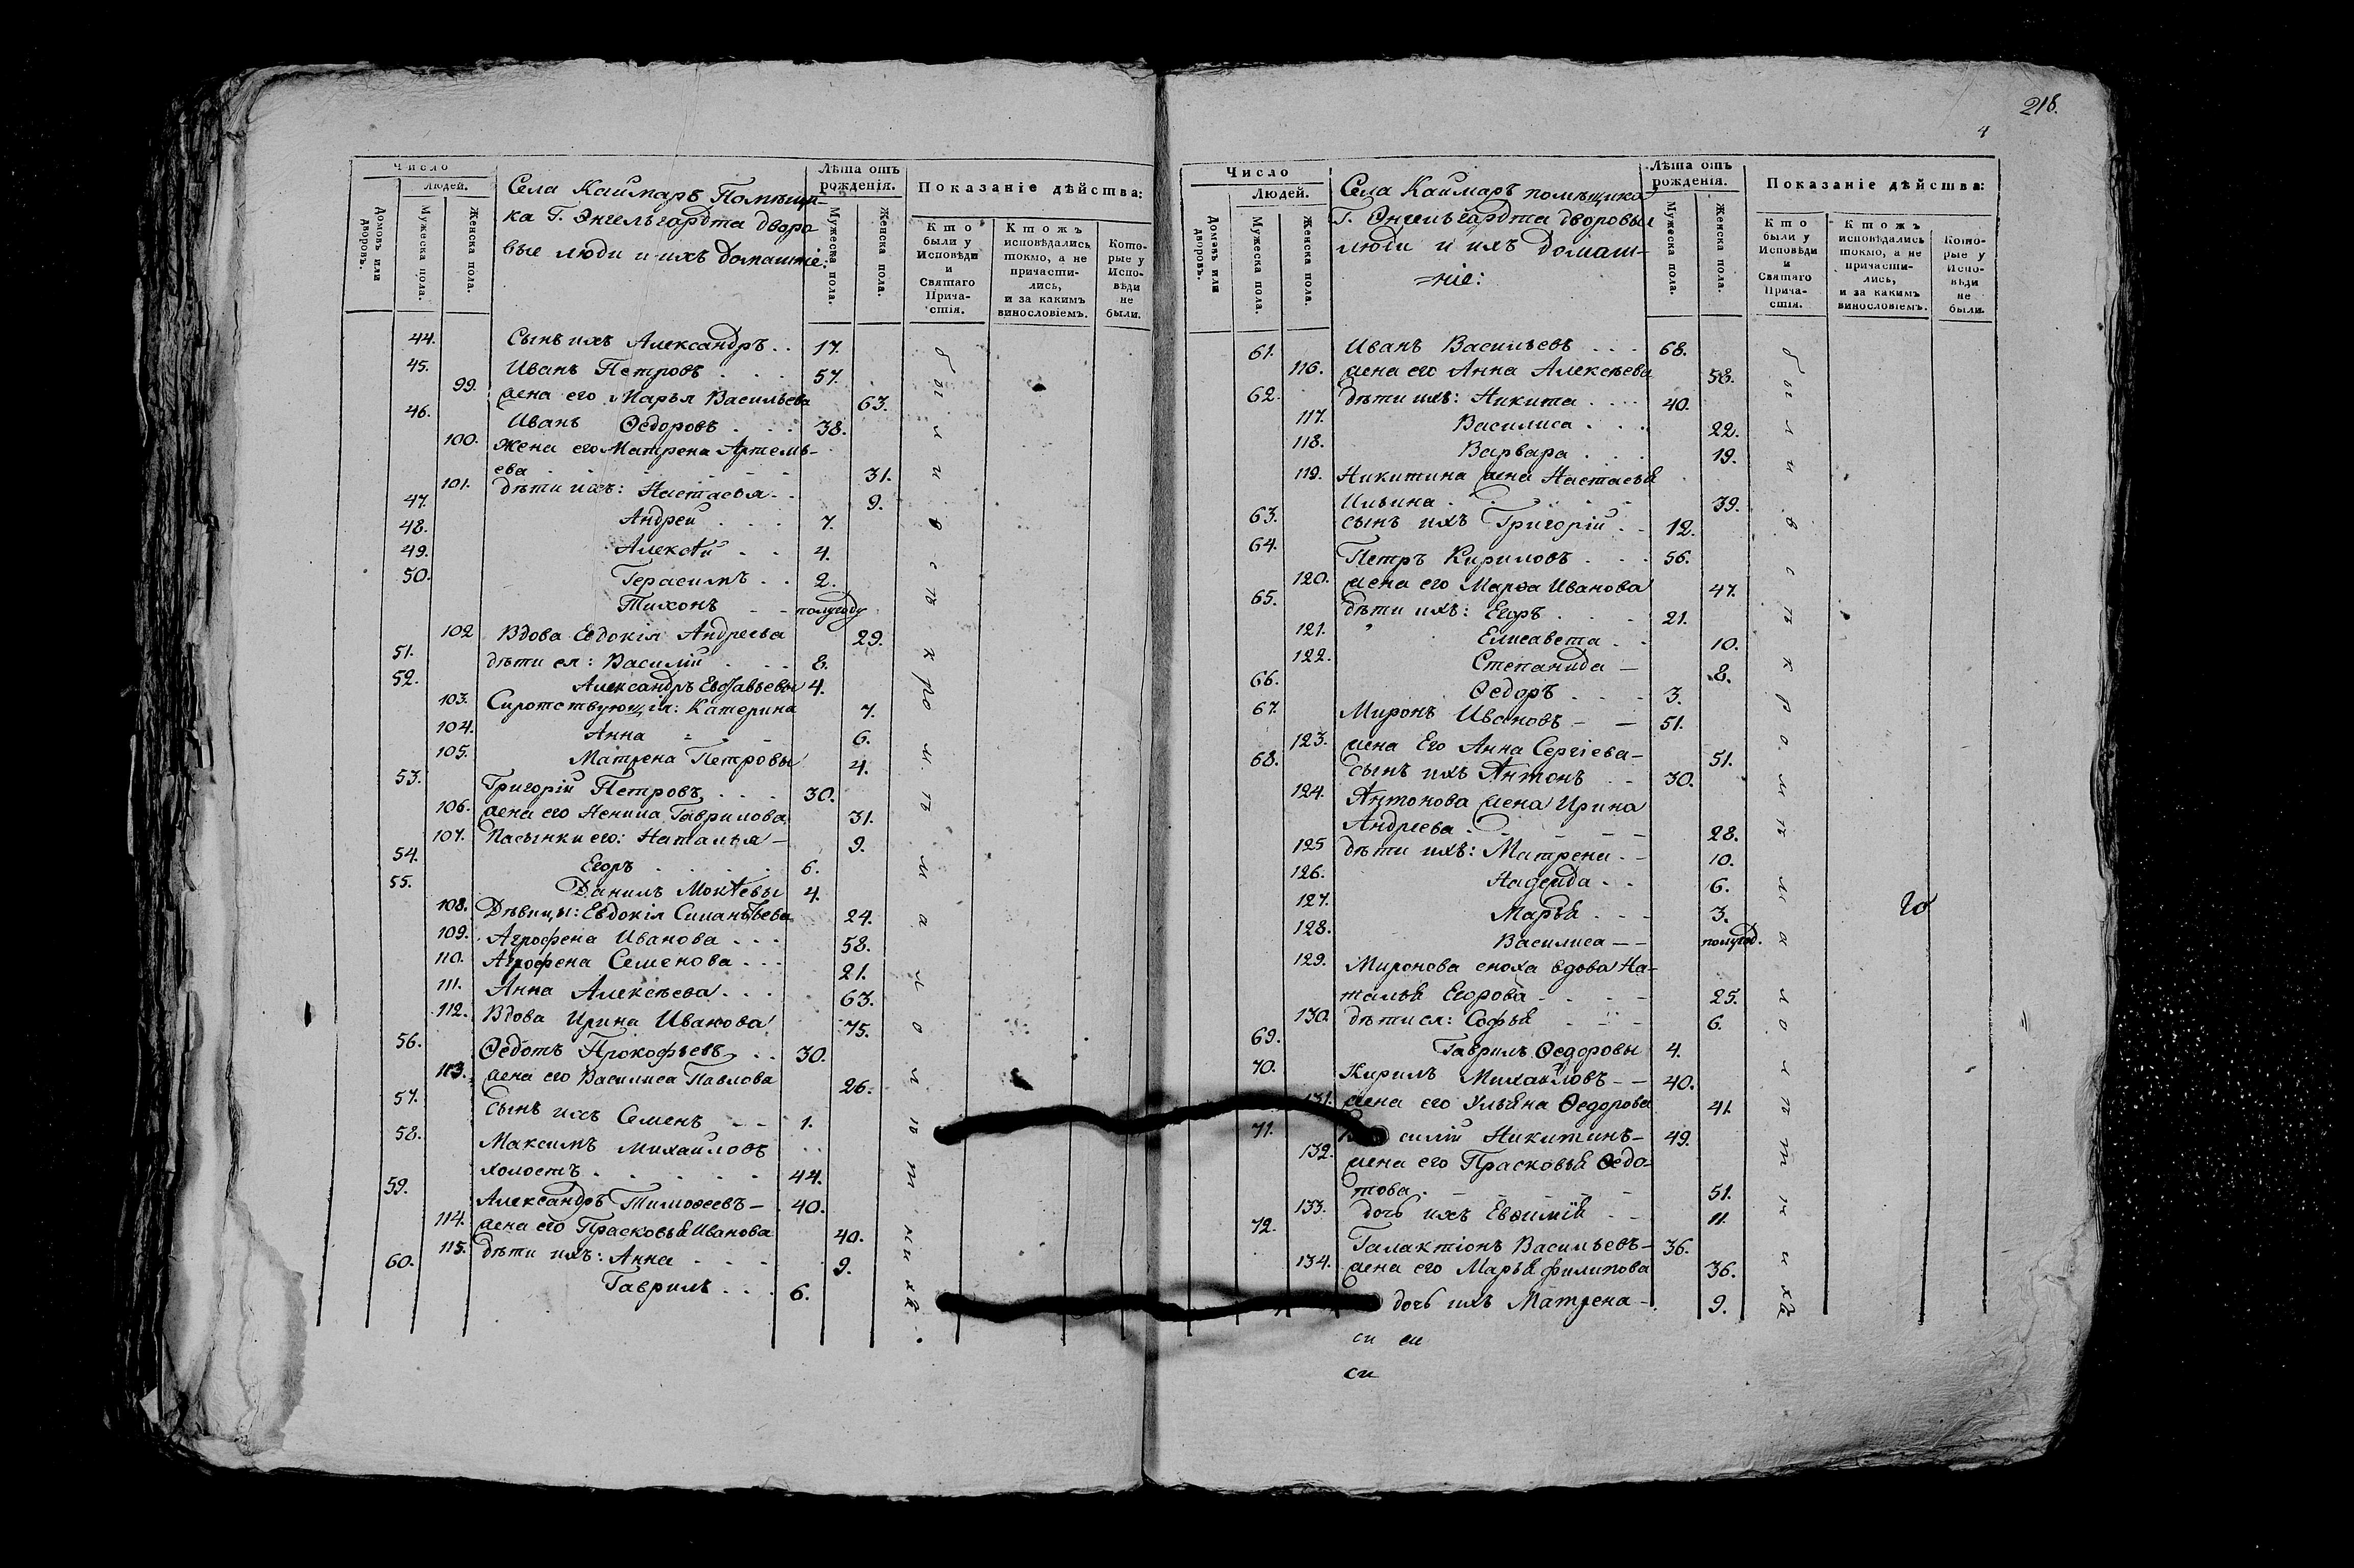 218.
4
Число
Людей.
Домовъ или дворовъ.
Мужеска пола.
Женска пола.
Села Каймаръ Помѣщи-
ка Г. Энгельгардта дворо
вые люди и ихъ домашніе:
Лѣта отъ рожденія.
Мужеска пола.
Женска пола.
Показаніе дѣйства:
Кто были у Исповѣди и Святаго Причастія.
Ктожъ исповѣдались токмо, а не причастились, и за какимъ винословіемъ.
Которые у Исповѣди не были.
44. Сынъ ихъ Александръ . . 17.
45. Иванъ Петровъ . . . 57.
99. жена его Марья Васильева 63.
46. Иванъ Ѳедоровъ . . . 38.
100. Жена его Матрена Артемь-
ева . . . . . 31.
101. дѣти ихъ: Настасья . . 9.
47. Андрей . . . 7.
48. Алексѣй . . 4.
49. Герасимъ . . 2.
50. Тихонъ - - полугоду
102 Вдова Евдокія Андреева 29.
51. дѣти ея: Василій . . . 8.
52. Александръ 4.
103. Сиротствующія: Катерина 7.
104. Анна - . - 6.
105. Матрена Петровы 4.
53. Григорій Петровъ . . . 30.
106. жена его Гаврилова 31.
107. Пасынки его: Наталья - 9.
54. Егоръ . . . . . 6.
55. Данилъ 4.
108. Дѣвицы: Евдокія 24.
109. Агрофена Иванова . . . 58.
110. Агрофена Семенова . . . 21.
111. Анна Алексѣева . . . 63.
112. Вдова Ирина Иванова 75.
56. Ѳедотъ Прокофьевъ . . 30.
113. жена его Василиса Павлова 26.
57. Сынъ ихъ Семенъ - - 1.
58. Максимъ Михайловъ
холостъ . . . . . 44.
59. Александръ Тимоѳеевъ - 40.
114. жена его Прасковья Иванова 40.
115. дѣти ихъ: Анна . . . . 9.
60. Гаврилъ . . . 6.
были в
съ
кромъ
мало
лѣт
нихъ
Число
Людей.
Домовъ или дворовъ.
Мужеска пола.
Женска пола.
Села Каймаръ помѣщика
Г. Энгельгардта дворовыя
люди и ихъ домаш-
=ніе:
Лѣта отъ рожденія.
Мужеска пола.
Женска пола.
Показаніе дѣйства:
Кто были у Исповѣди и Святаго Причастія.
Ктожъ исповѣдались токмо, а не причастились, и за какимъ винословіемъ.
Которые у Исповѣди не были.
61. Иванъ Васильевъ . . . 68.
116. жена его Анна Алексѣева 58.
62. дѣти ихъ: Никита . . . . 40.
117. Василиса . . . 22.
118. Варвара . . . 19.
119. Никитина жена Настасья
Ильина . . . . . 39.
63. сынъ ихъ Григорій . . 12.
64. Петръ Кириловъ . . . 56.
120. жена его Марѳа Иванова 47.
65. дѣти ихъ: Егоръ . . . 21.
121. Елисавета . . 10.
122. Степанида - 8.
66. Ѳедоръ . . . 3.
67. Миронъ Ивановъ - - 51.
123. жена Его Анна Сергіева - 51.
68. Сынъ ихъ Антонъ . - 30.
124. Антонова жена Ирина
Андреева . - - - 28.
125 дѣти ихъ: Матрена . - 10.
126. Надежда . . 6.
127. Марья . . . 3.
128. Василиса - - полугод.
129. Миронова сноха вдова На-
талья Егорова - . . - 25.
130. дѣти ея: Софья - . - 6.
69. Гаврилъ Ѳедоровы 4.
70. Кирилъ Михайловъ - - 40.
131. жена его Ульяна Ѳедорова 41.
71. силій Никитинъ - 49.
132. жена его Прасковья Ѳедо-
това . - - - - 51.
133. дочь ихъ Евѳимія . - 11.
72. Галактіонъ Васильевъ - 36.
134. жена его Марья Филипова 36.
дочь ихъ Матрена - . 9.
были в
съ
кромъ
мало
лѣт
нихъ
си си
си